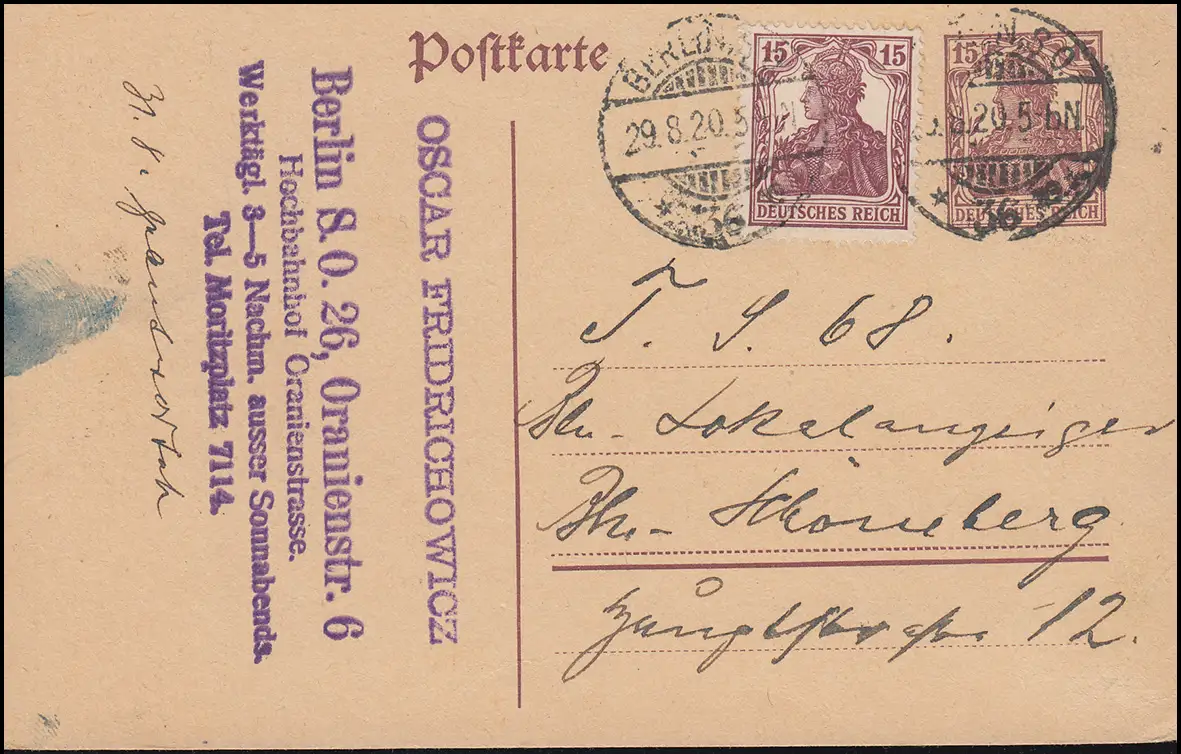 Postkarte
BERLIN S.O.
29.8.20.5-6N.
* 36
15 15
DEUTSCHES REICH
15
N.S.O.
.8.20.5-6N.
* 36
DEUTSCHES REICH
OSCAR FRIDRICHOWICZ
Berlin S. O. 26, Oranienstr. 6
Hochbahnhof Oranienstrasse.
Werktägl. 3—5 Nachm. ausser Sonnabends.
Tel. Moritzplatz 7114.
31. 8.
T. S. 68.
Bln- Lokalanzeiger
Bln- Schöneberg
12.